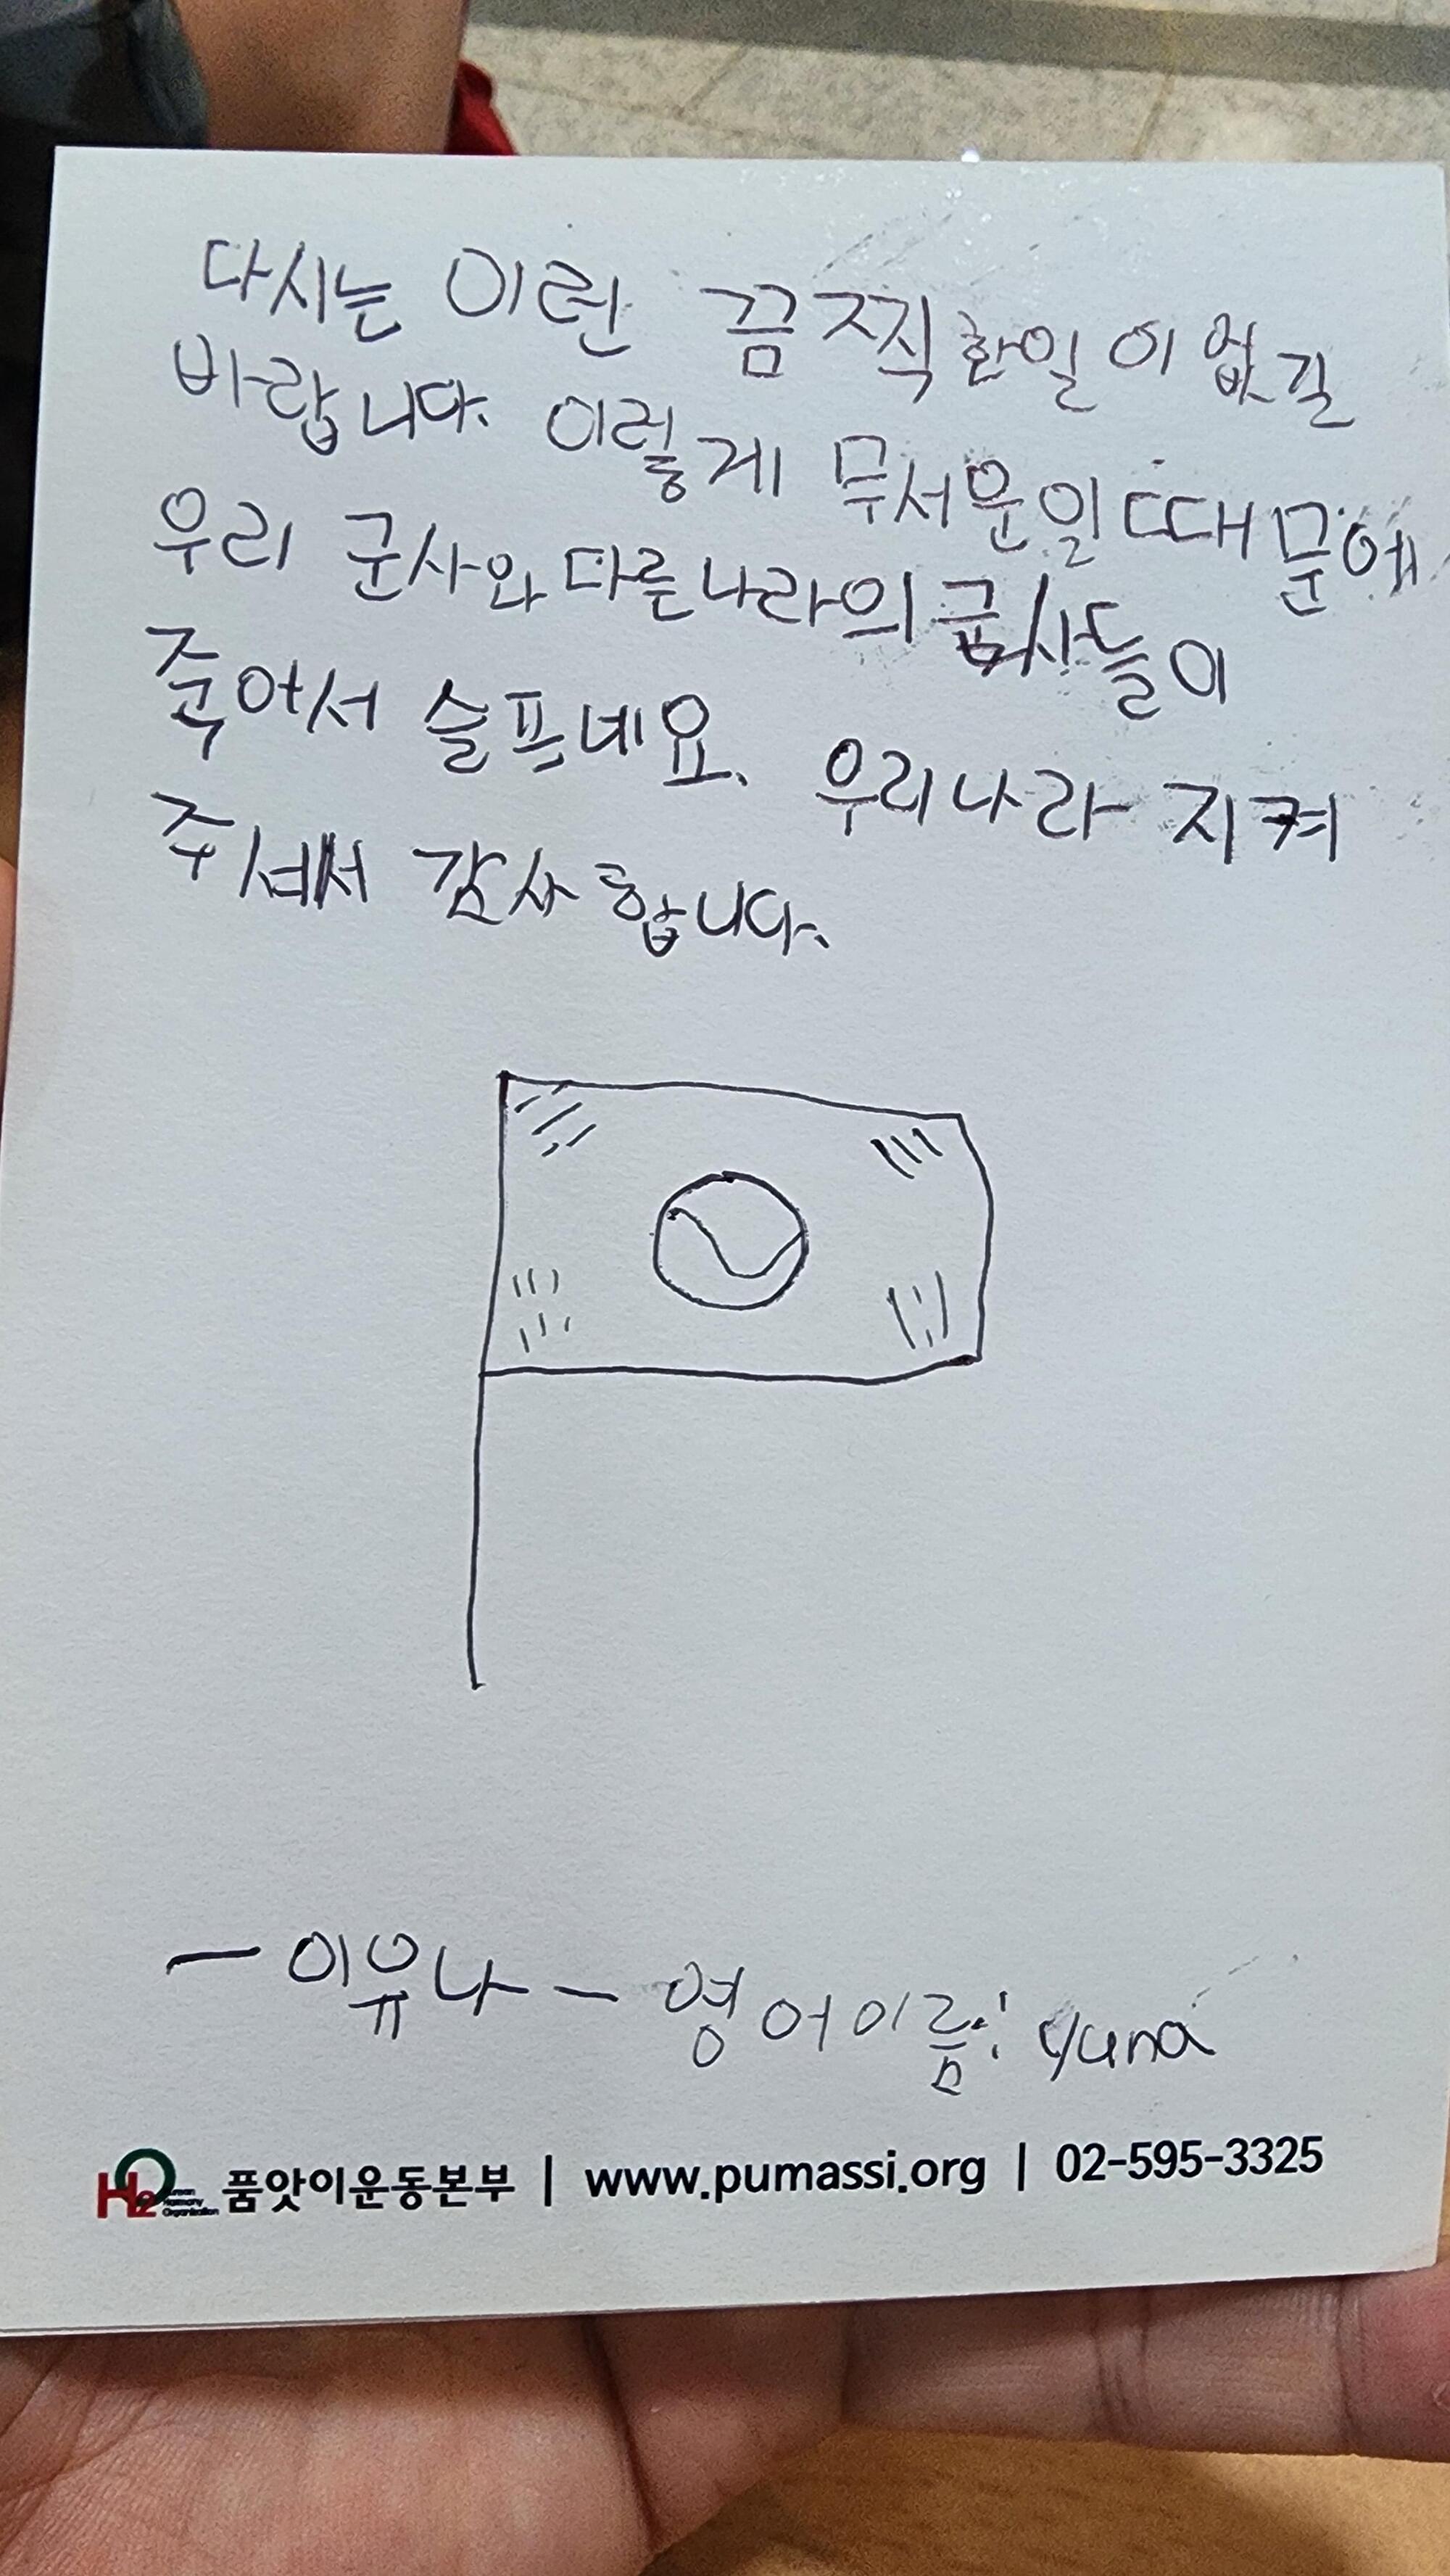 다시는 이런 끔찍한일이 없길
바랍니다. 이렇게 무서운일 때문에
우리 군사와 다른나라의 군사들이
죽어서 슬프네요. 우리나라 지켜
주셔서 감사합니다.
ㅡ이유나ㅡ 영어이름: yuna
H2O 품앗이운동본부 | www.pumassi.org | 02-595-3325